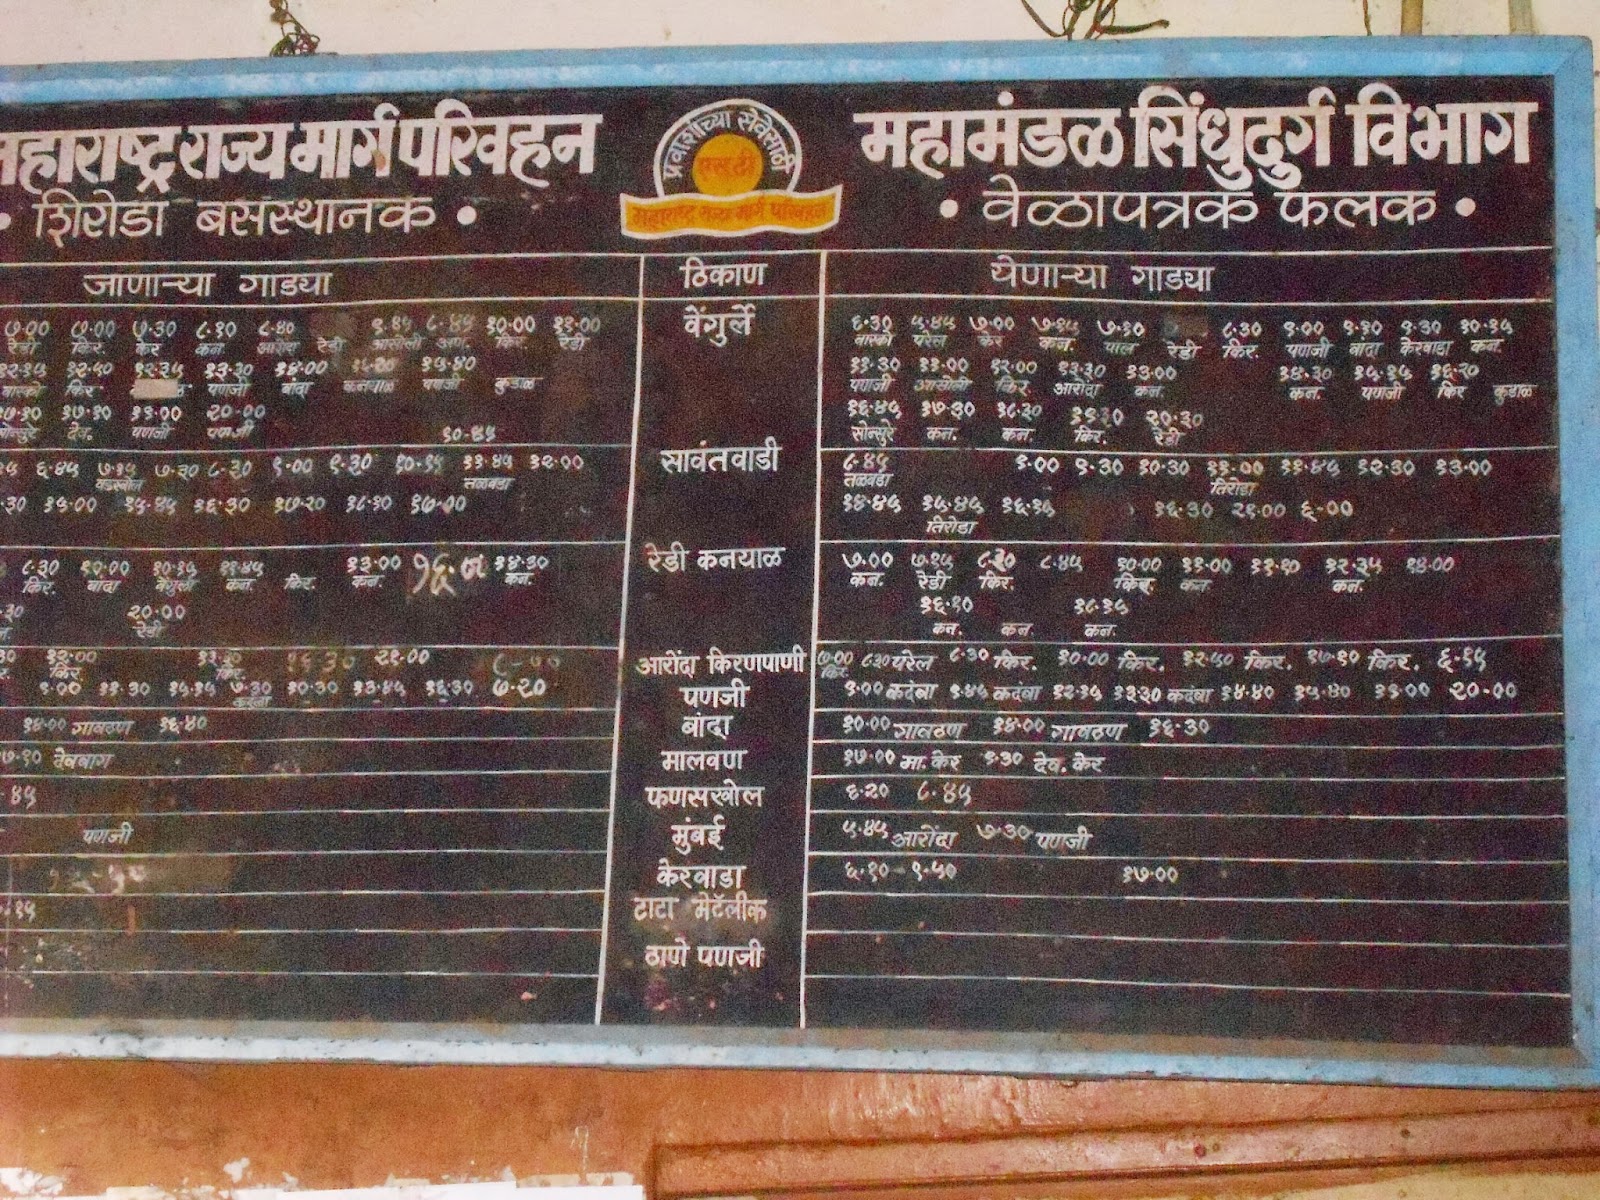 महाराष्ट्र राज्य मार्ग परिवहन
प्रवाशांच्या सेवेसाठी
एस.टी
महाराष्ट्र राज्य मार्ग परिवहन
महामंडळ सिंधुदुर्ग विभाग
• शिरोडा बसस्थानक •
• वेळापत्रक फलक •
जाणाऱ्या गाड्या
ठिकाण
येणाऱ्या गाड्या
७.०० ७.०० ७.३० ८.१० ८.४० ९.१५ ८.४५ १०.०० ११.००
रेडी किर. केर कन. आरोंदा रेडी आसोली अण. किर. रेडी
१२.१५ १२.५० १२.३५ १३.३० १४.०० १५.२० १५.४०
वास्को किर पणजी बांदा कनयाळ पणजी कुडाळ
१७.१० १७.१० १९.०० २०.००
सोन्सुरे देव. पणजी पणजी
१०.४५
वेंगुर्ले
६.३० ५.४५ ७.०० ७.१५ ७.१० ८.३० ९.०० ९.१० ९.३० १०.१५
वास्को परेल केर कन. पाल रेडी किर. पणजी बांदा केरवाडा कन.
११.३० ११.०० १२.०० १३.३० १३.०० १४.३० १५.१५ १६.२०
पणजी आसोली किर आरोंदा कन. कन. पणजी किर कुडाळ
१६.४५ १७.३० १८.३० १९.३० २०.३०
सोन्सुरे कन. कन. किर. रेडी
६.४५ ७.१५ ७.३० ८.३० ९.०० ९.३० १०.१५ ११.४५ १२.००
तळवडा
१५.०० १५.४५ १६.३० १७.२० १८.१० १७.००
सावंतवाडी
८.४५ ९.०० ९.३० १०.३० ११.०० ११.४५ १२.३० १३.००
तळवडा तिरोडा
१४.४५ १५.४५ १६.१५ १६.३० २१.०० ६.००
तिरोडा
८.३० १०.०० १०.१५ ११.४५ १३.०० १४.३०
किर. बांदा वेंगुर्ला कन. किर. कन. कन.
२०.००
रेडी
रेडी कनयाळ
७.०० ७.१५ ८.३० ८.४५ १०.०० ११.०० ११.१० १२.३५ १४.००
कन. रेडी किर. किर. कन. कन.
१६.१० १८.१५
कन. कन. कन.
१२.०० १३.३० १६.३० २१.००
किर. किर.
आरोंदा किरणपाणी
७.०० ८.३० परेल ८.३० किर. १०.०० किर. १२.५० किर. १७.१० किर. ६.१५
किर.
९.०० ११.३० १५.१५ ७.३० १०.३० १३.४५ १६.३० ७.२०
कदंबा
पणजी
९.०० कदंबा ९.४५ कदंबा १२.१५ १३.३० कदंबा १४.४० १५.४० १९.०० २०.००
१४.०० गावठण १६.४०
बांदा
१०.०० गावठण १४.०० गावठण १६.३०
७.१० देवबाग
मालवण
१७.०० मा. केर ९.३० देव. केर
४५
फणसखोल
६.२० ८.४५
पणजी
मुंबई
५.४५ आरोंदा ७.३० पणजी
केरवाडा
६.१० - ९.५० १७.००
टाटा मेटॅलीक
ठाणे पणजी